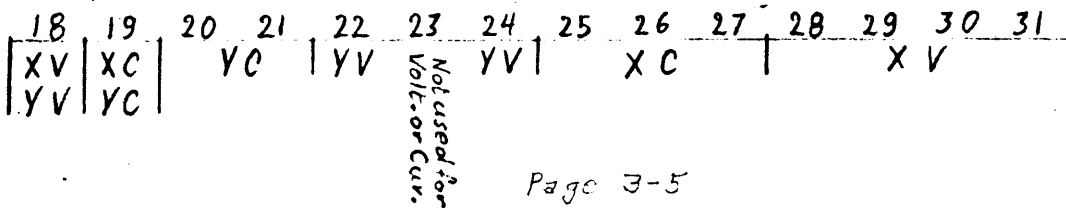 18 19 20 21 22 23 24 25 26 27 28 29 30 31
XV XC YC YV YV XC XV
YV YC
Not used for
Volt. or Cur.
Page 3-5